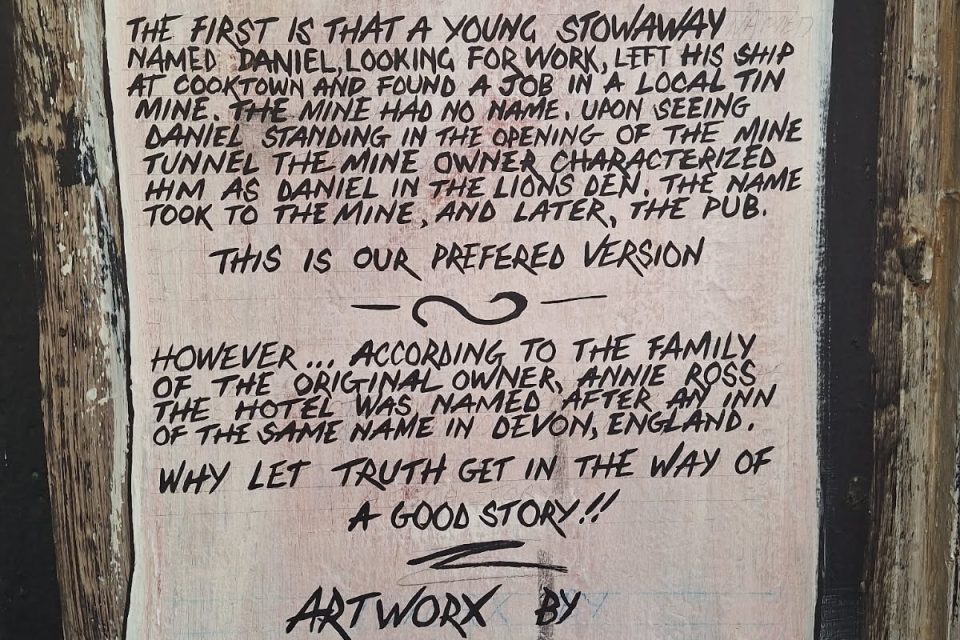 THE FIRST IS THAT A YOUNG STOWAWAY
NAMED DANIEL, LOOKING FOR WORK, LEFT HIS SHIP
AT COOKTOWN AND FOUND A JOB IN A LOCAL TIN
MINE. THE MINE HAD NO NAME. UPON SEEING
DANIEL STANDING IN THE OPENING OF THE MINE
TUNNEL THE MINE OWNER CHARACTERIZED
HIM AS DANIEL IN THE LIONS DEN. THE NAME
TOOK TO THE MINE, AND LATER, THE PUB.
THIS IS OUR PREFERED VERSION
HOWEVER... ACCORDING TO THE FAMILY
OF THE ORIGINAL OWNER, ANNIE ROSS
THE HOTEL WAS NAMED AFTER AN INN
OF THE SAME NAME IN DEVON, ENGLAND.
WHY LET TRUTH GET IN THE WAY OF
A GOOD STORY!!
ARTWORX BY